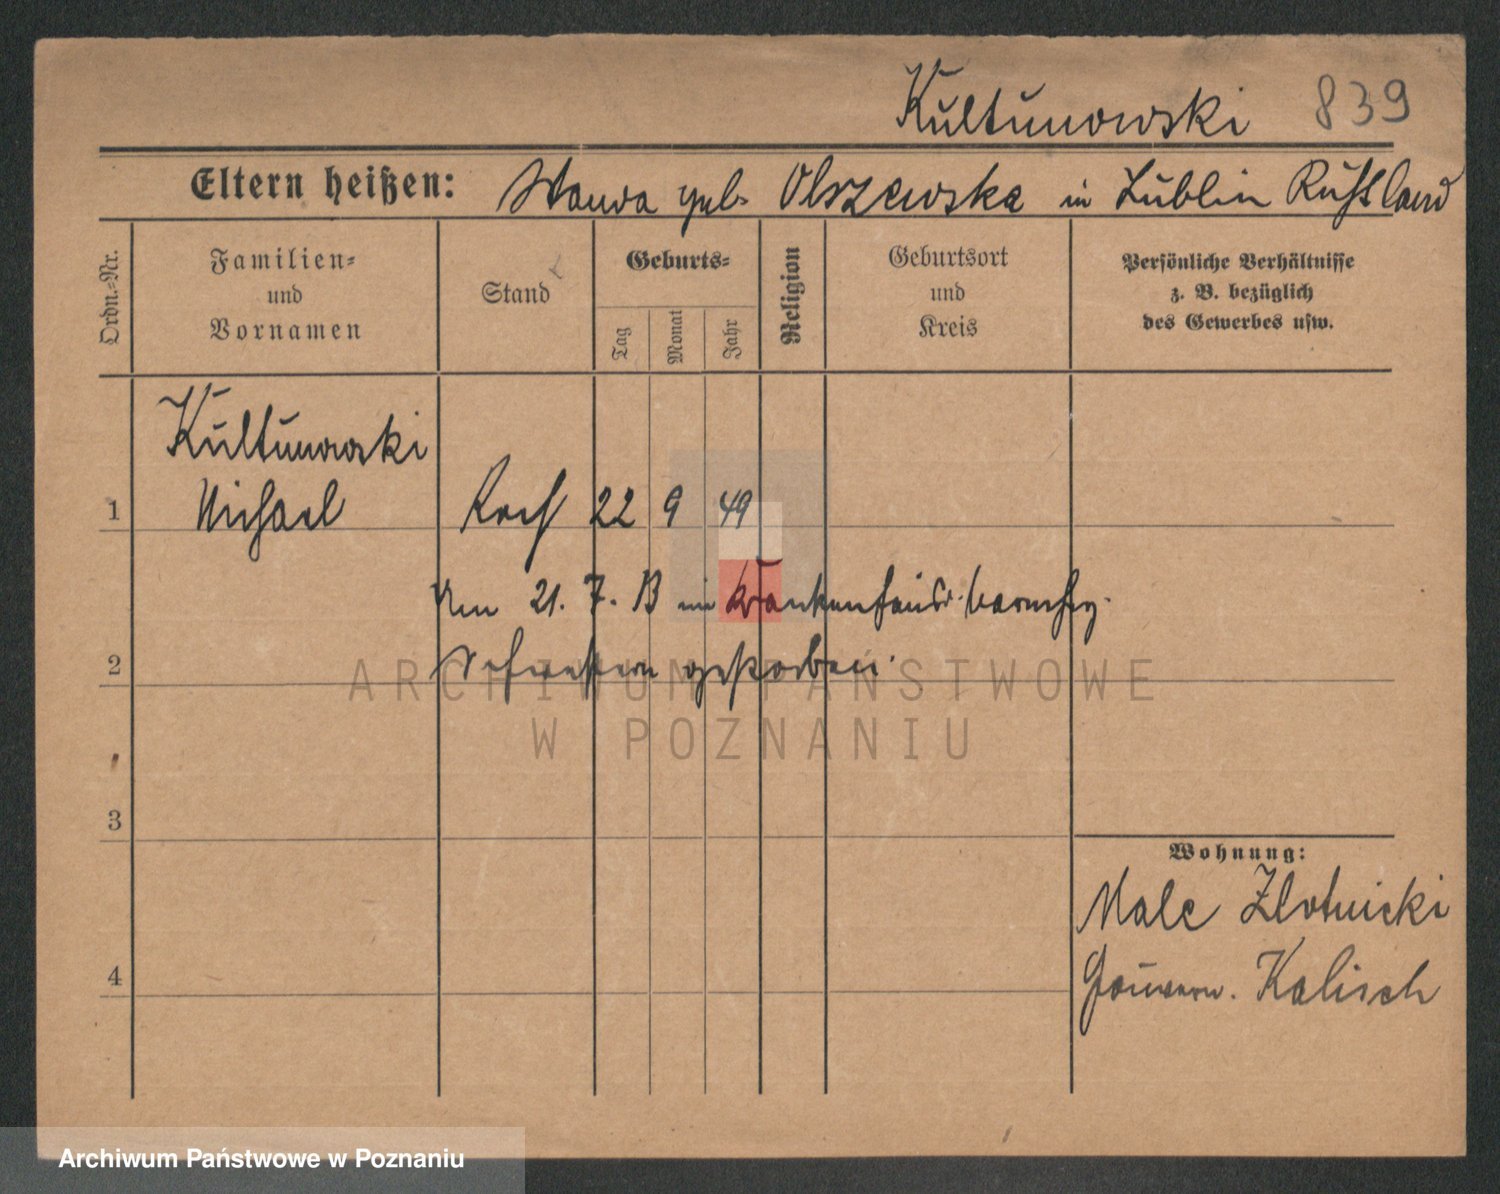 Kultunowski 839
Eltern heißen: Wanda geb. Olszewska in Lublin Rußland
Ordn.-Nr.
Familien-
und
Vornamen
Stand
Geburts-
Tag
Monat
Jahr
Religion
Geburtsort
und
Kreis
Persönliche Verhältnisse
z. B. bezüglich
des Gewerbes usw.
Kultunowski
1 Michael Koch 22 9 49
Am 21. 7. 13 im Krankenhaus d. barmhzg.
2 Schwestern gestorben.
ARCHIWUM PAŃSTWOWE
W POZNANIU
3
Wohnung:
Male Zlotnicki
4 Gouvern. Kalisch
Archiwum Państwowe w Poznaniu